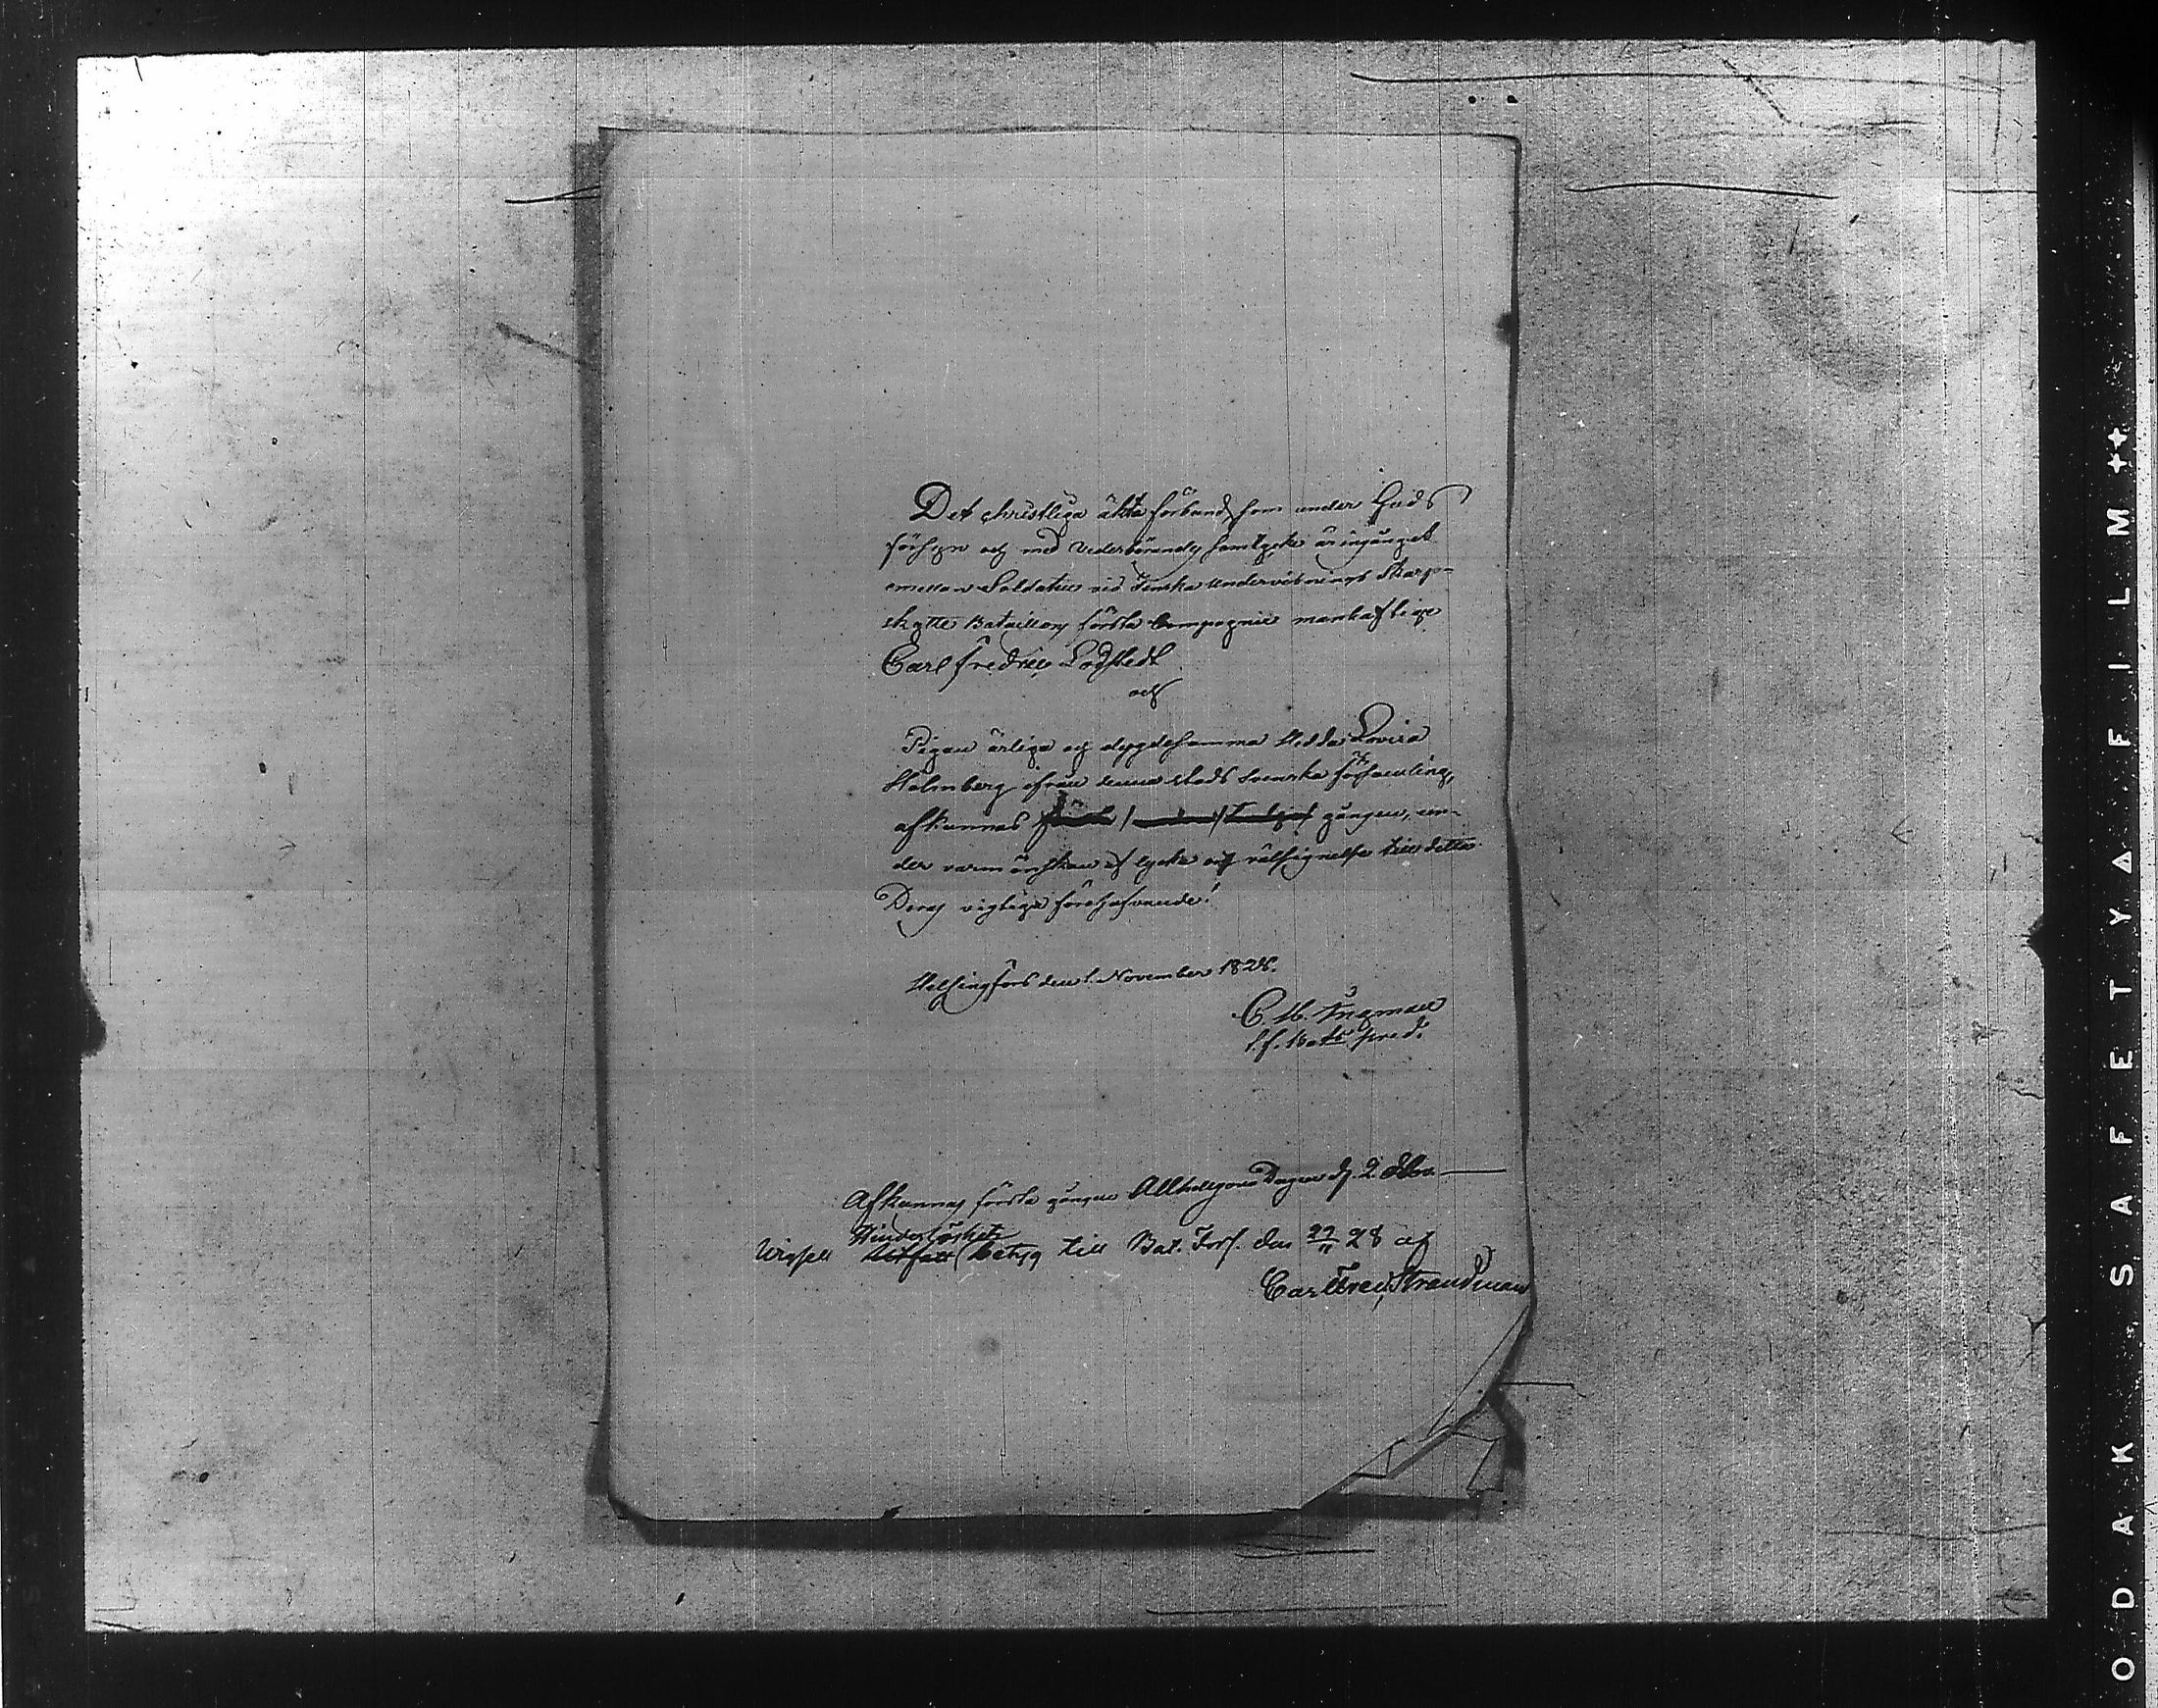 Det christliga äkta förbund, som under Guds
försyn och med Vederbörandes samtycke är ingånget
emellan Soldaten vid Finska Undervisnings Skarp-
skytte Bataillons första Compagnie manhaftige
Carl Fredric Lodstedt
och
Pigan ärliga och dygdesamma Hedda Lovisa
Holmberg ifrån denna stads Svenska församling,
afkunnas gången, un-
der varm önskan af lycka och välsignelse till detta
Deras vigtiga förehafvande!
Helsingfors den 1. November 1828.
C. M. Ingman
t. f. Bats pred.
Afkunnas första gången Allhelgona Dagen d. 2 Nov.
Hinderlöshets
Utfatt betyg till Bat. Förs. den 22/11 28 af
Carl Fred. Strandman
KODAK SAFETY FILM